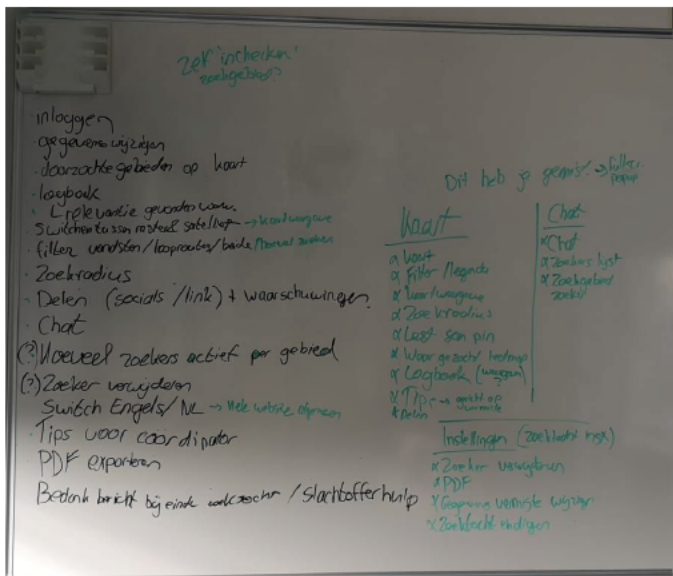 Zelf 'inchecken'
zoekgebied?
inloggen
gegevens wijzigen
doorzochte gebieden op kaart
logboek
relevantie gevonden
Switchen tussen satelliet → kaartweergave
filter vondsten/looproutes/
Zoekradius
Delen (socials/link) + waarschuwingen
Chat
(?) Hoeveel zoekers actief per gebied
(?) Zoeker verwijderen
Switch Engels/NL → Hele website algemeen
Tips voor coördinator
PDF exporteren
Bedank bericht bij einde / slachtofferhulp
Dit heb je gemist! →
popup
Kaart
Kaart
Filter/legenda
Kaartweergave
Zoekradius
Last seen pin
Waar gezocht
Logboek
Tips → op
Delen
Chat
Chat
Zoekers lijst
Zoekgebied
Instellingen
Zoeker verwijderen
PDF
Gegevens vermiste
Zoektocht eindigen